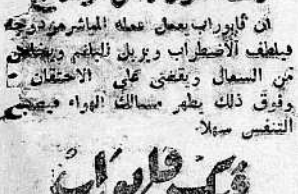 أن ڤابوراب يعمل عمله المباشر مزدوجه
فيلطف الأضطراب ويزيل
من السعال ويقضي على الاحتقان -
وفوق ذلك يطهر مسالك الهواء فيصبح
التنفس سهلا.
ڤيك ڤابوراب